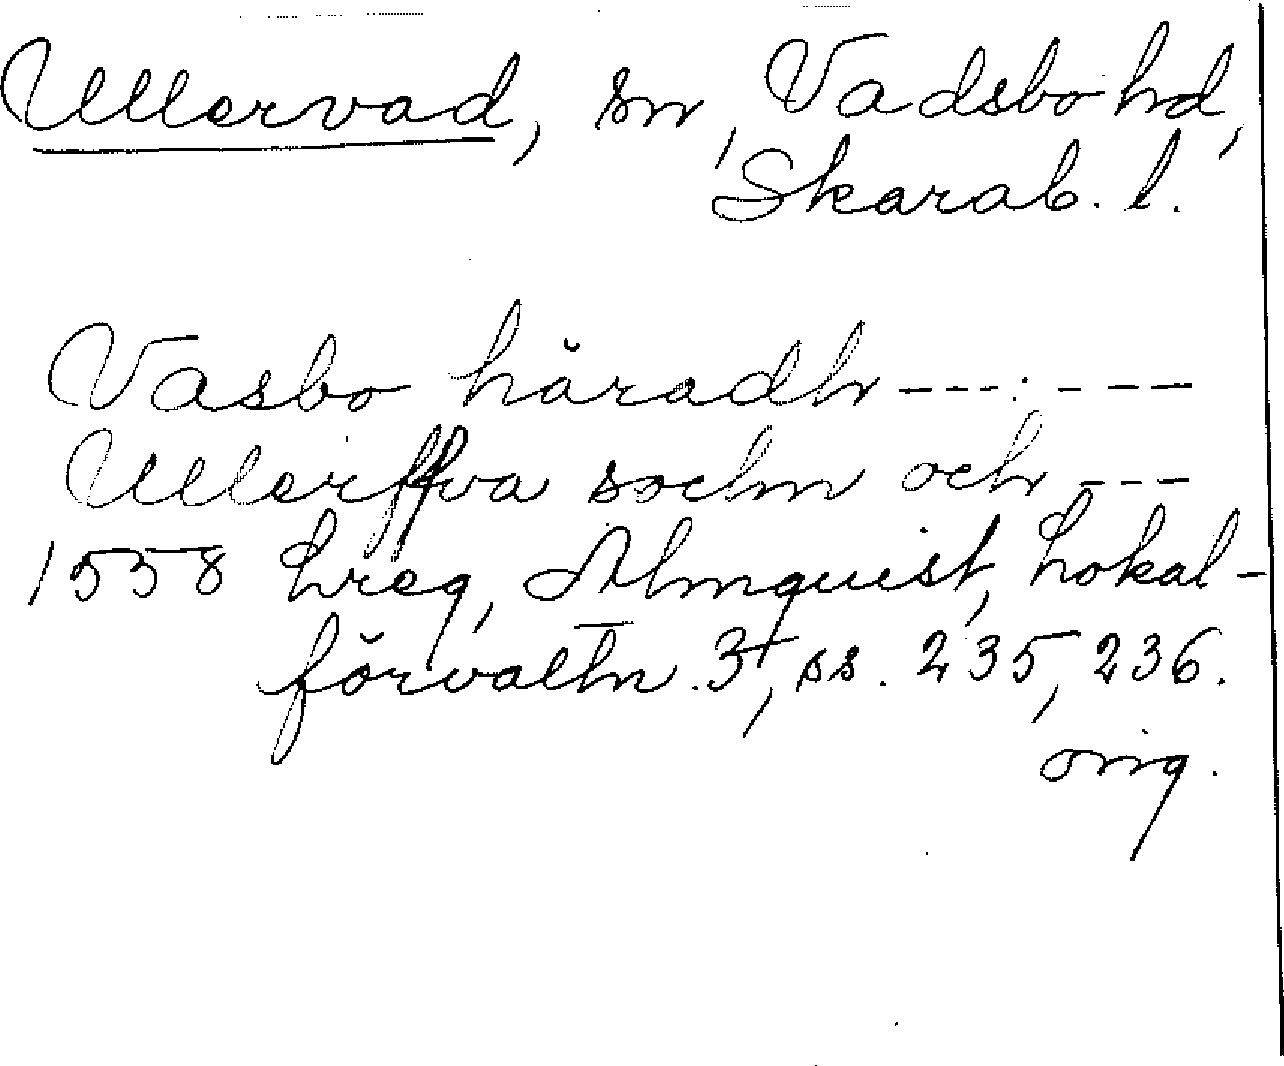 Ullervad, sn, Vadsbo hd,
Skarab. l.
Vasbo häradh ---.---
Ullerffva sochn och ---
1558 Lreg, Almquist, Lokal-
förvaltn. 3, ss. 235, 236.
orig.